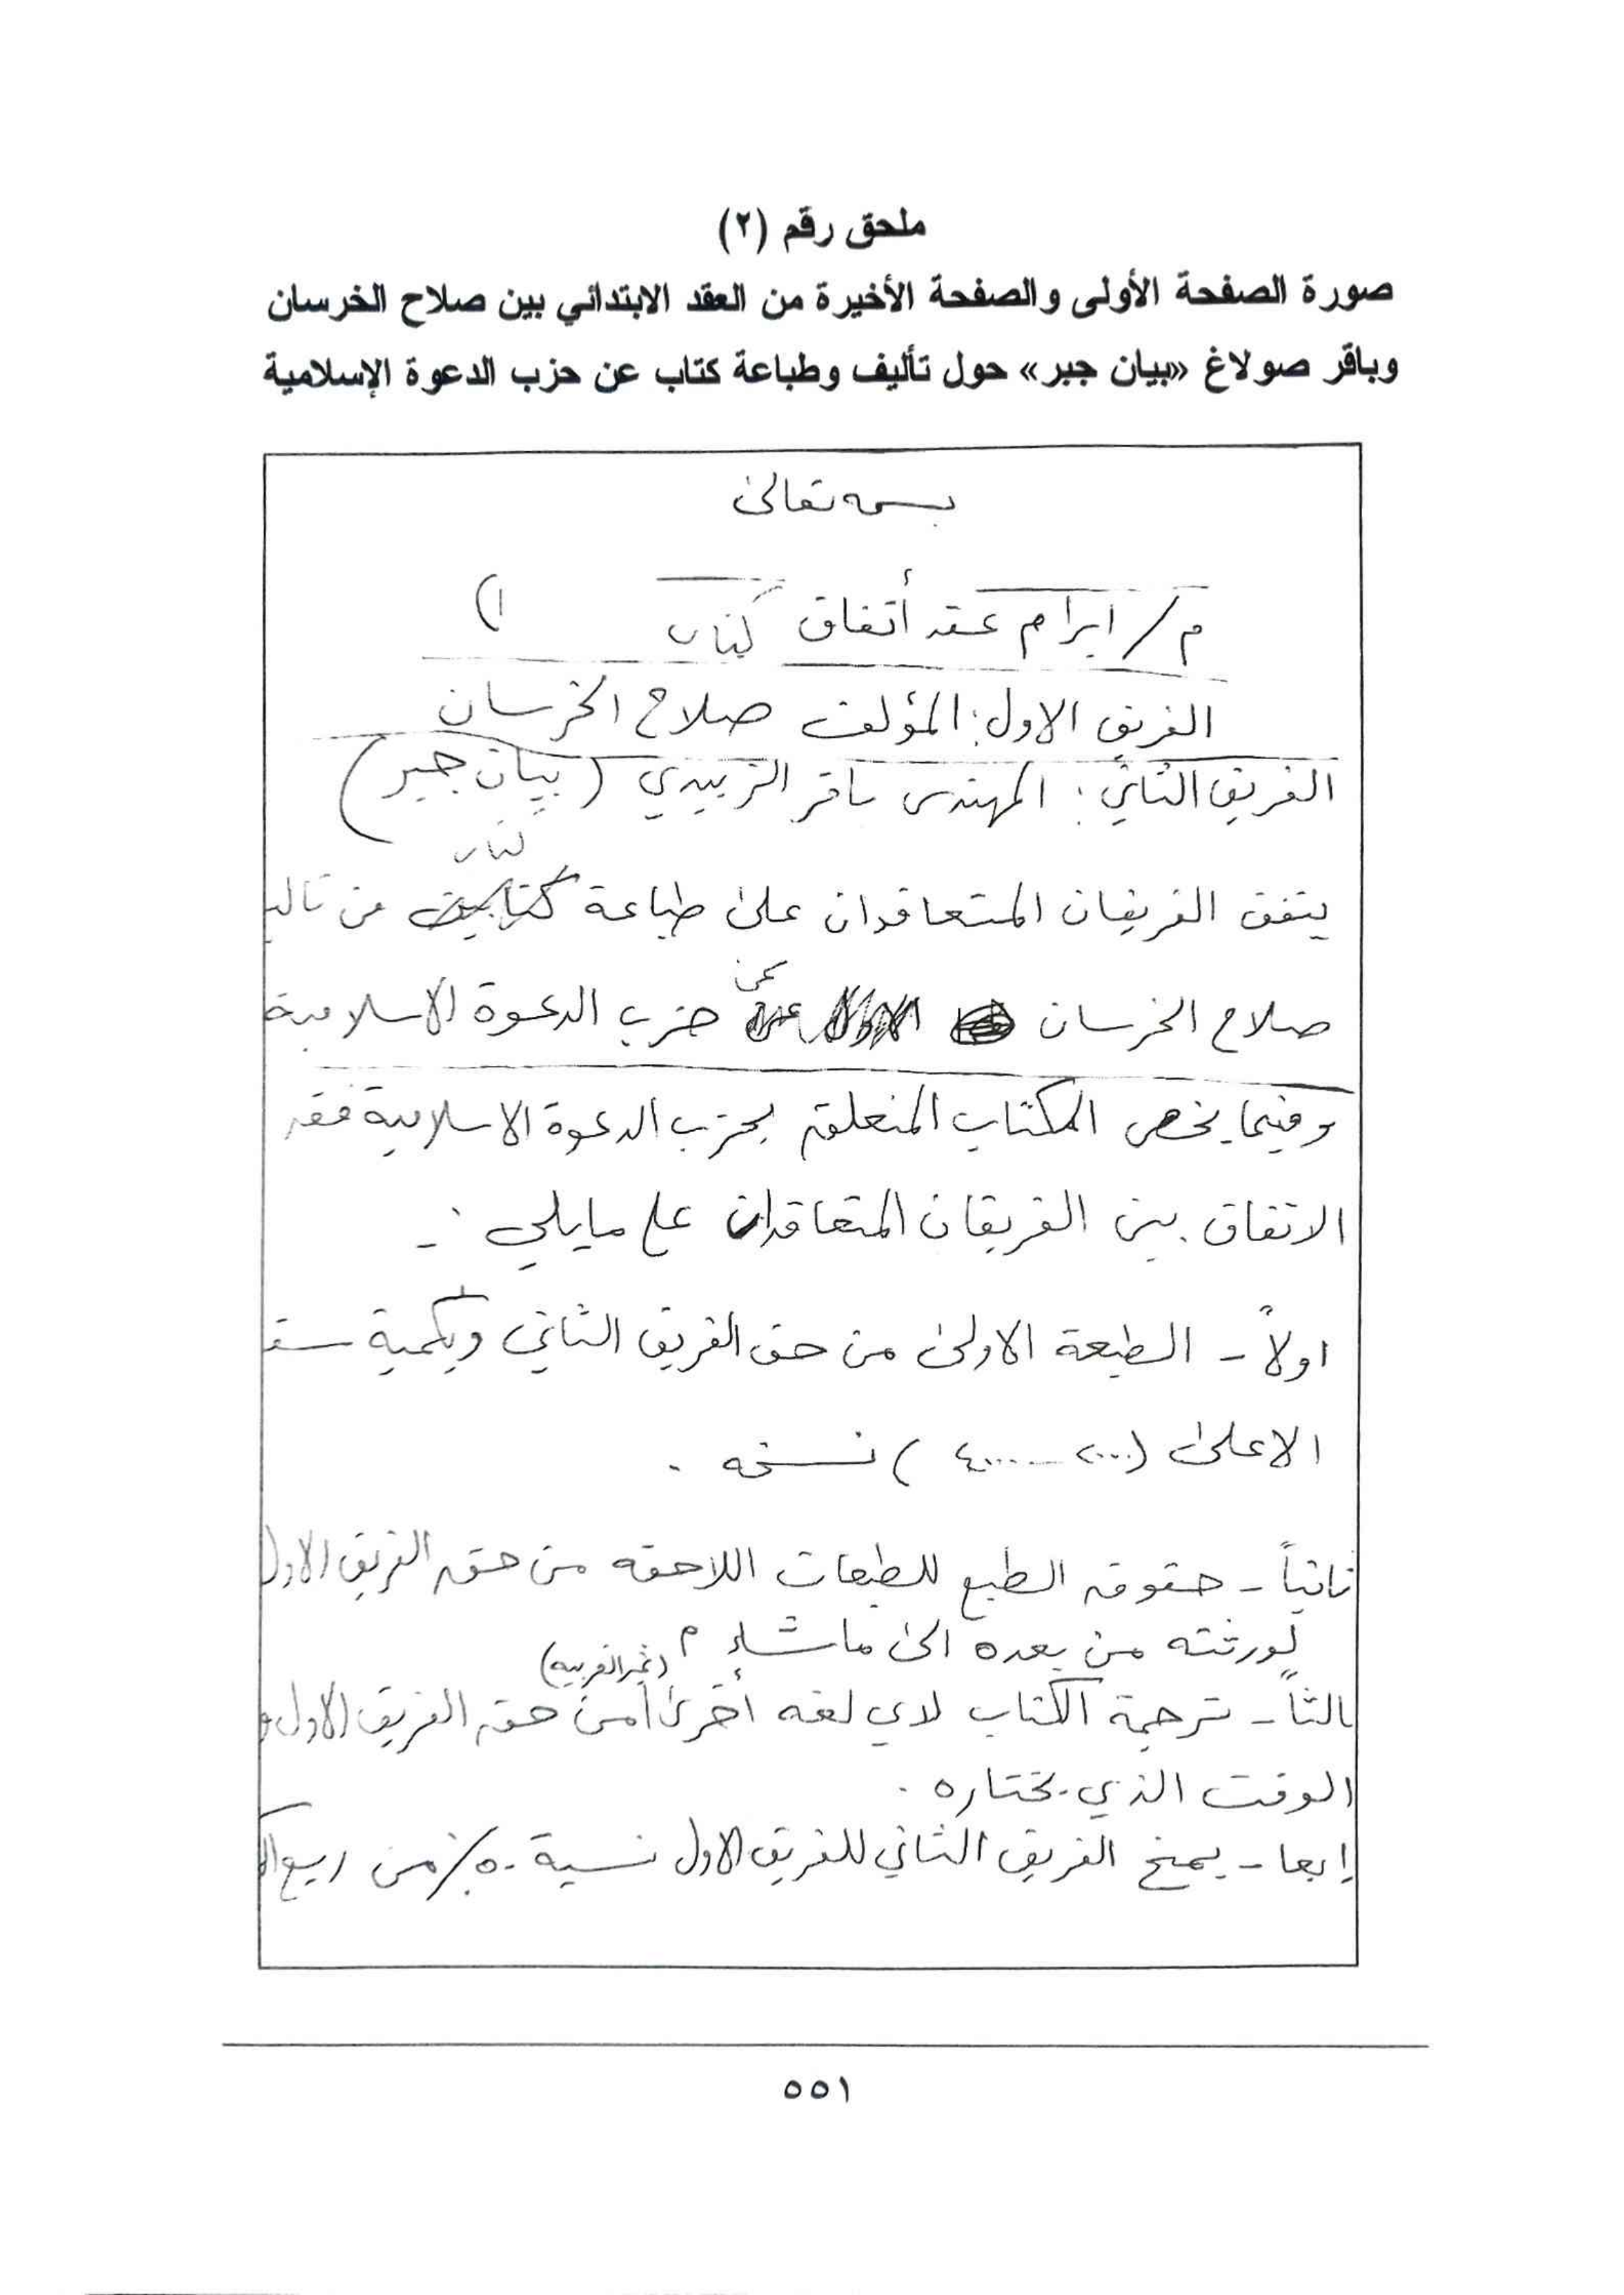 ملحق رقم (٢)
صورة الصفحة الأولى والصفحة الأخيرة من العقد الابتدائي بين صلاح الخرسان
وباقر صولاغ «بيان جبر» حول تأليف وطباعة كتاب عن حزب الدعوة الإسلامية
بسمه تعالى
م/ ابرام عقد أتفاق كتاب (١
الفريق الاول: المؤلف صلاح الخرسان
الفريق الثاني: المهندس باقر الزبيدي (بيان جبر)
كتاب
يتفق الفريقان المتعاقدان على طباعة من تالي
عن
صلاح الخرسان حزب الدعوة الاسلامية
وفيما يخص الكتاب المتعلق بحزب الدعوة الاسلامية فقد
الاتفاق بين الفريقان المتعاقدان على مايلي :-
اولاً - الطبعة الاولى من حق الفريق الثاني وبكمية سقـ
الاعلى (٢٠٠٠ - ٤٠٠٠) نسخه .
ثانياً - حقوق الطبع للطبعات اللاحقه من حق الفريق الاول
لورثته من بعده الى ماشاء
(غير العربيه)
الثاً - ترجمة الكتاب لاي لغه أخرى من حق الفريق الاول و
الوقت الذي يختاره .
ابعا - يمنح الفريق الثاني للفريق الاول نسبة ٥٠٪ من ريع
٥٥١